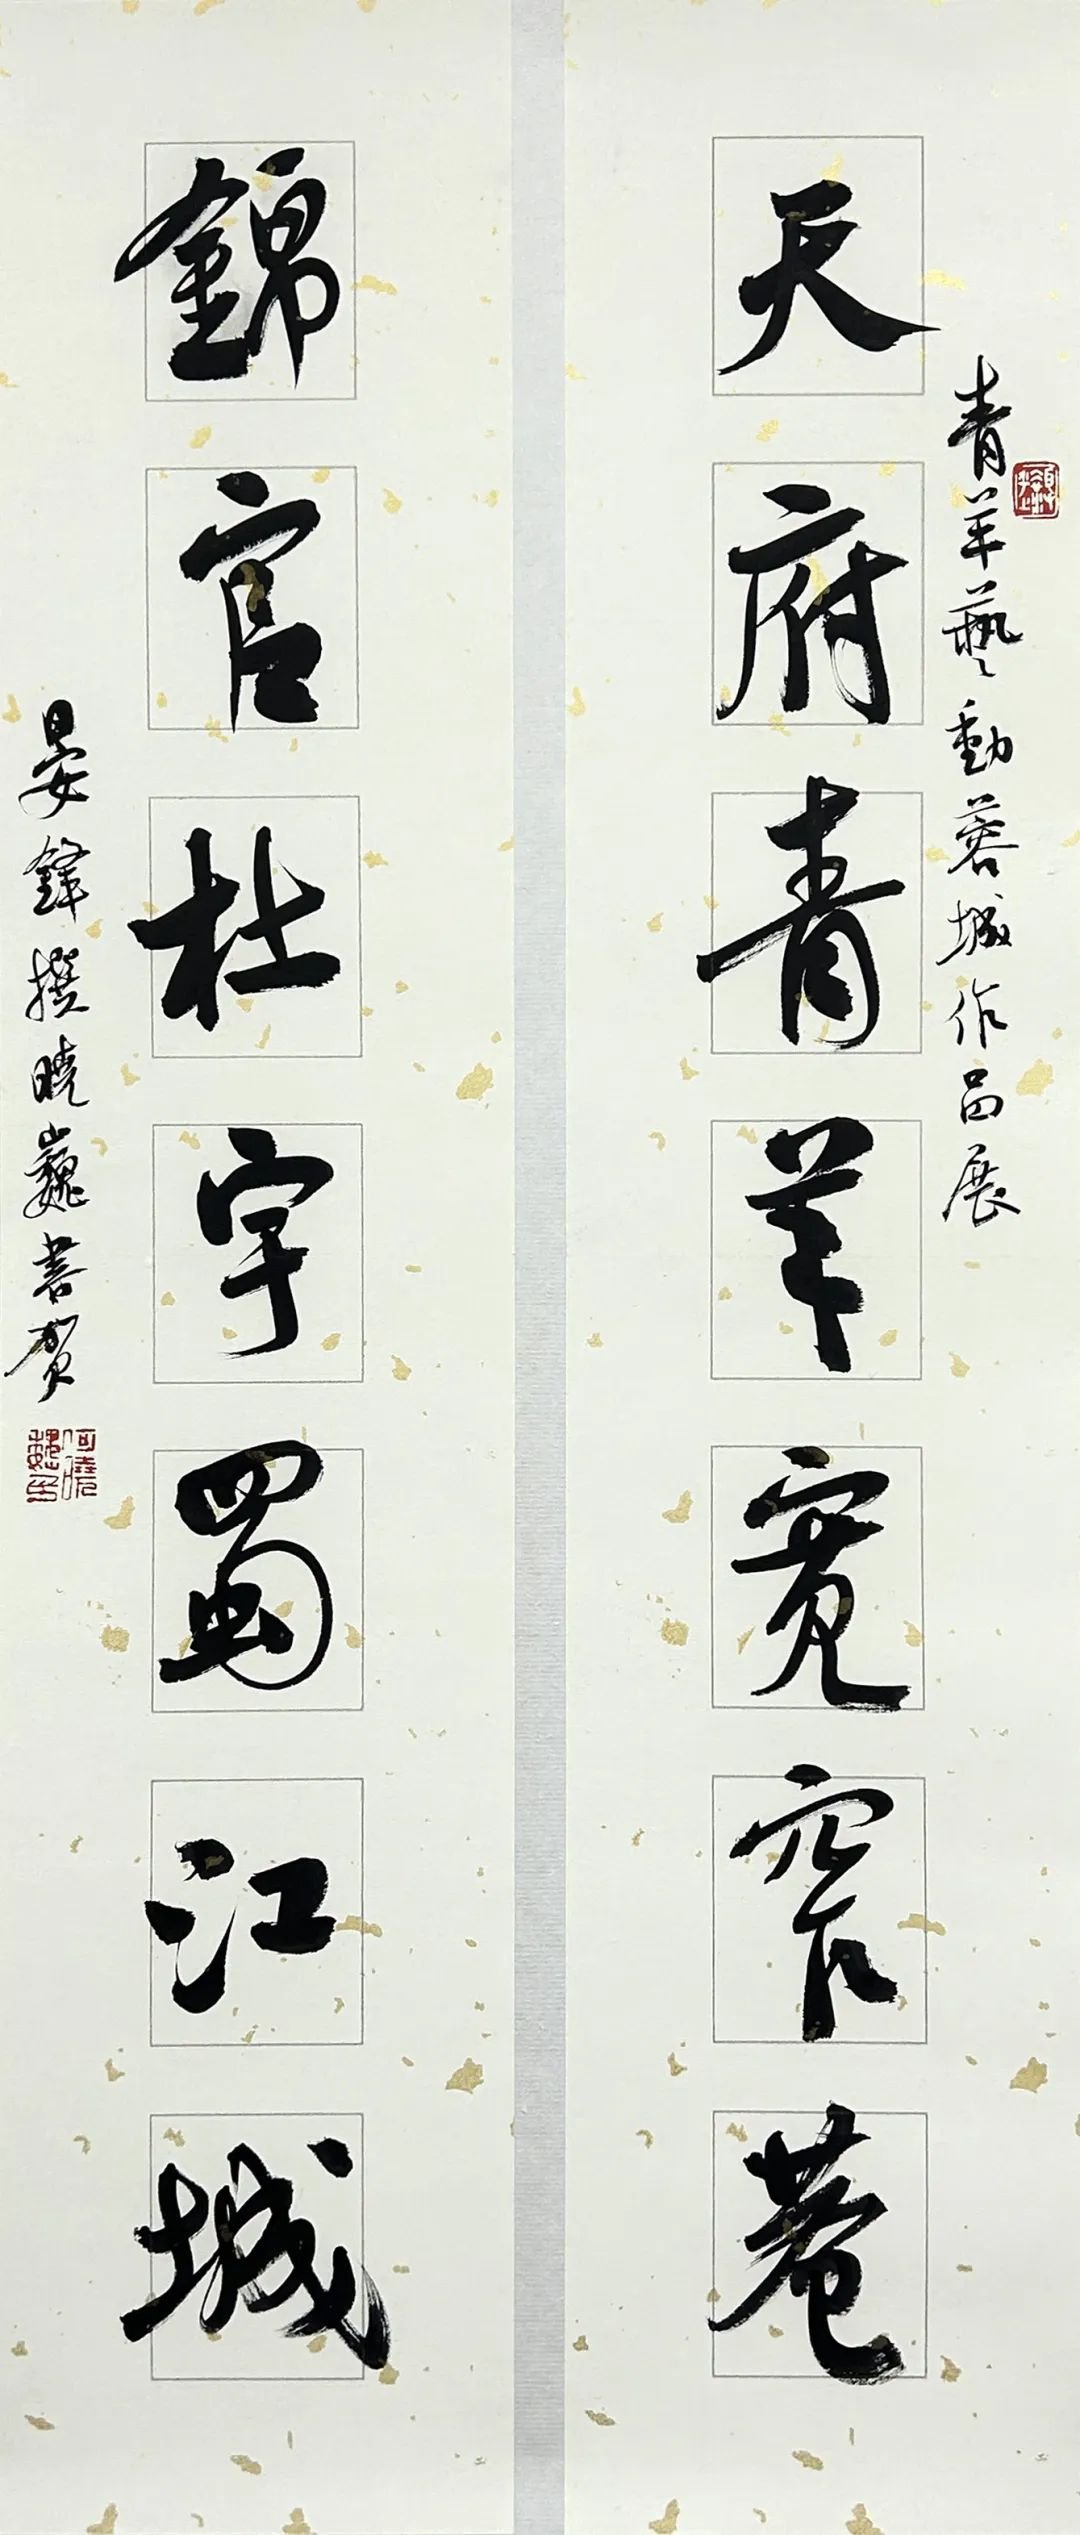 青羊藝動蓉城作品展
天府青羊寬窄巷
錦官杜宇蜀江城
晏鋒撰曉巍書賀